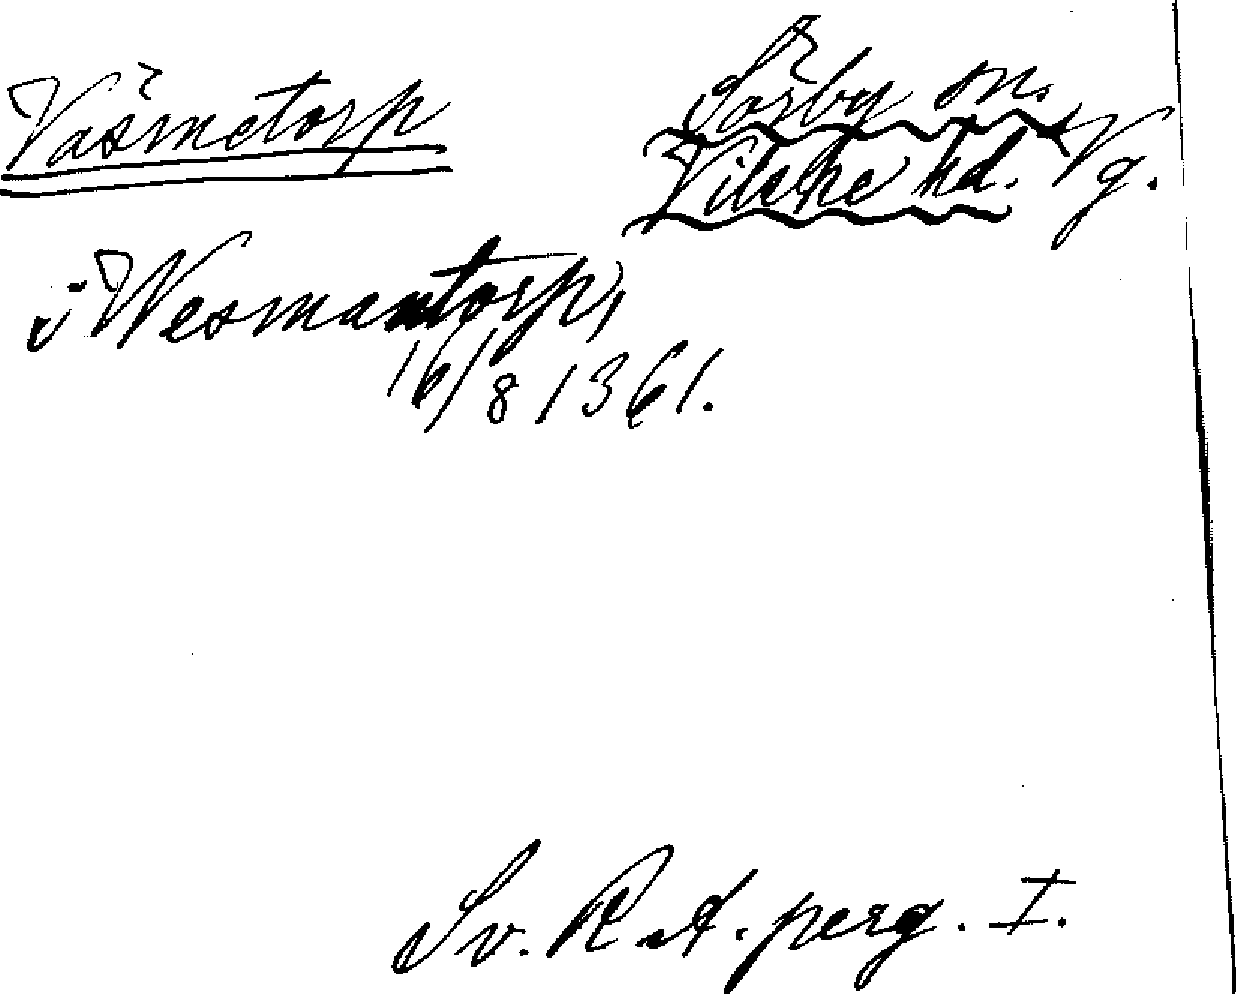 Väsmetorp
Sörby sn.
Vilske hd. Vg.
i Wesmantorp,
16/8 1361.
Sv. R.A. perg. I.